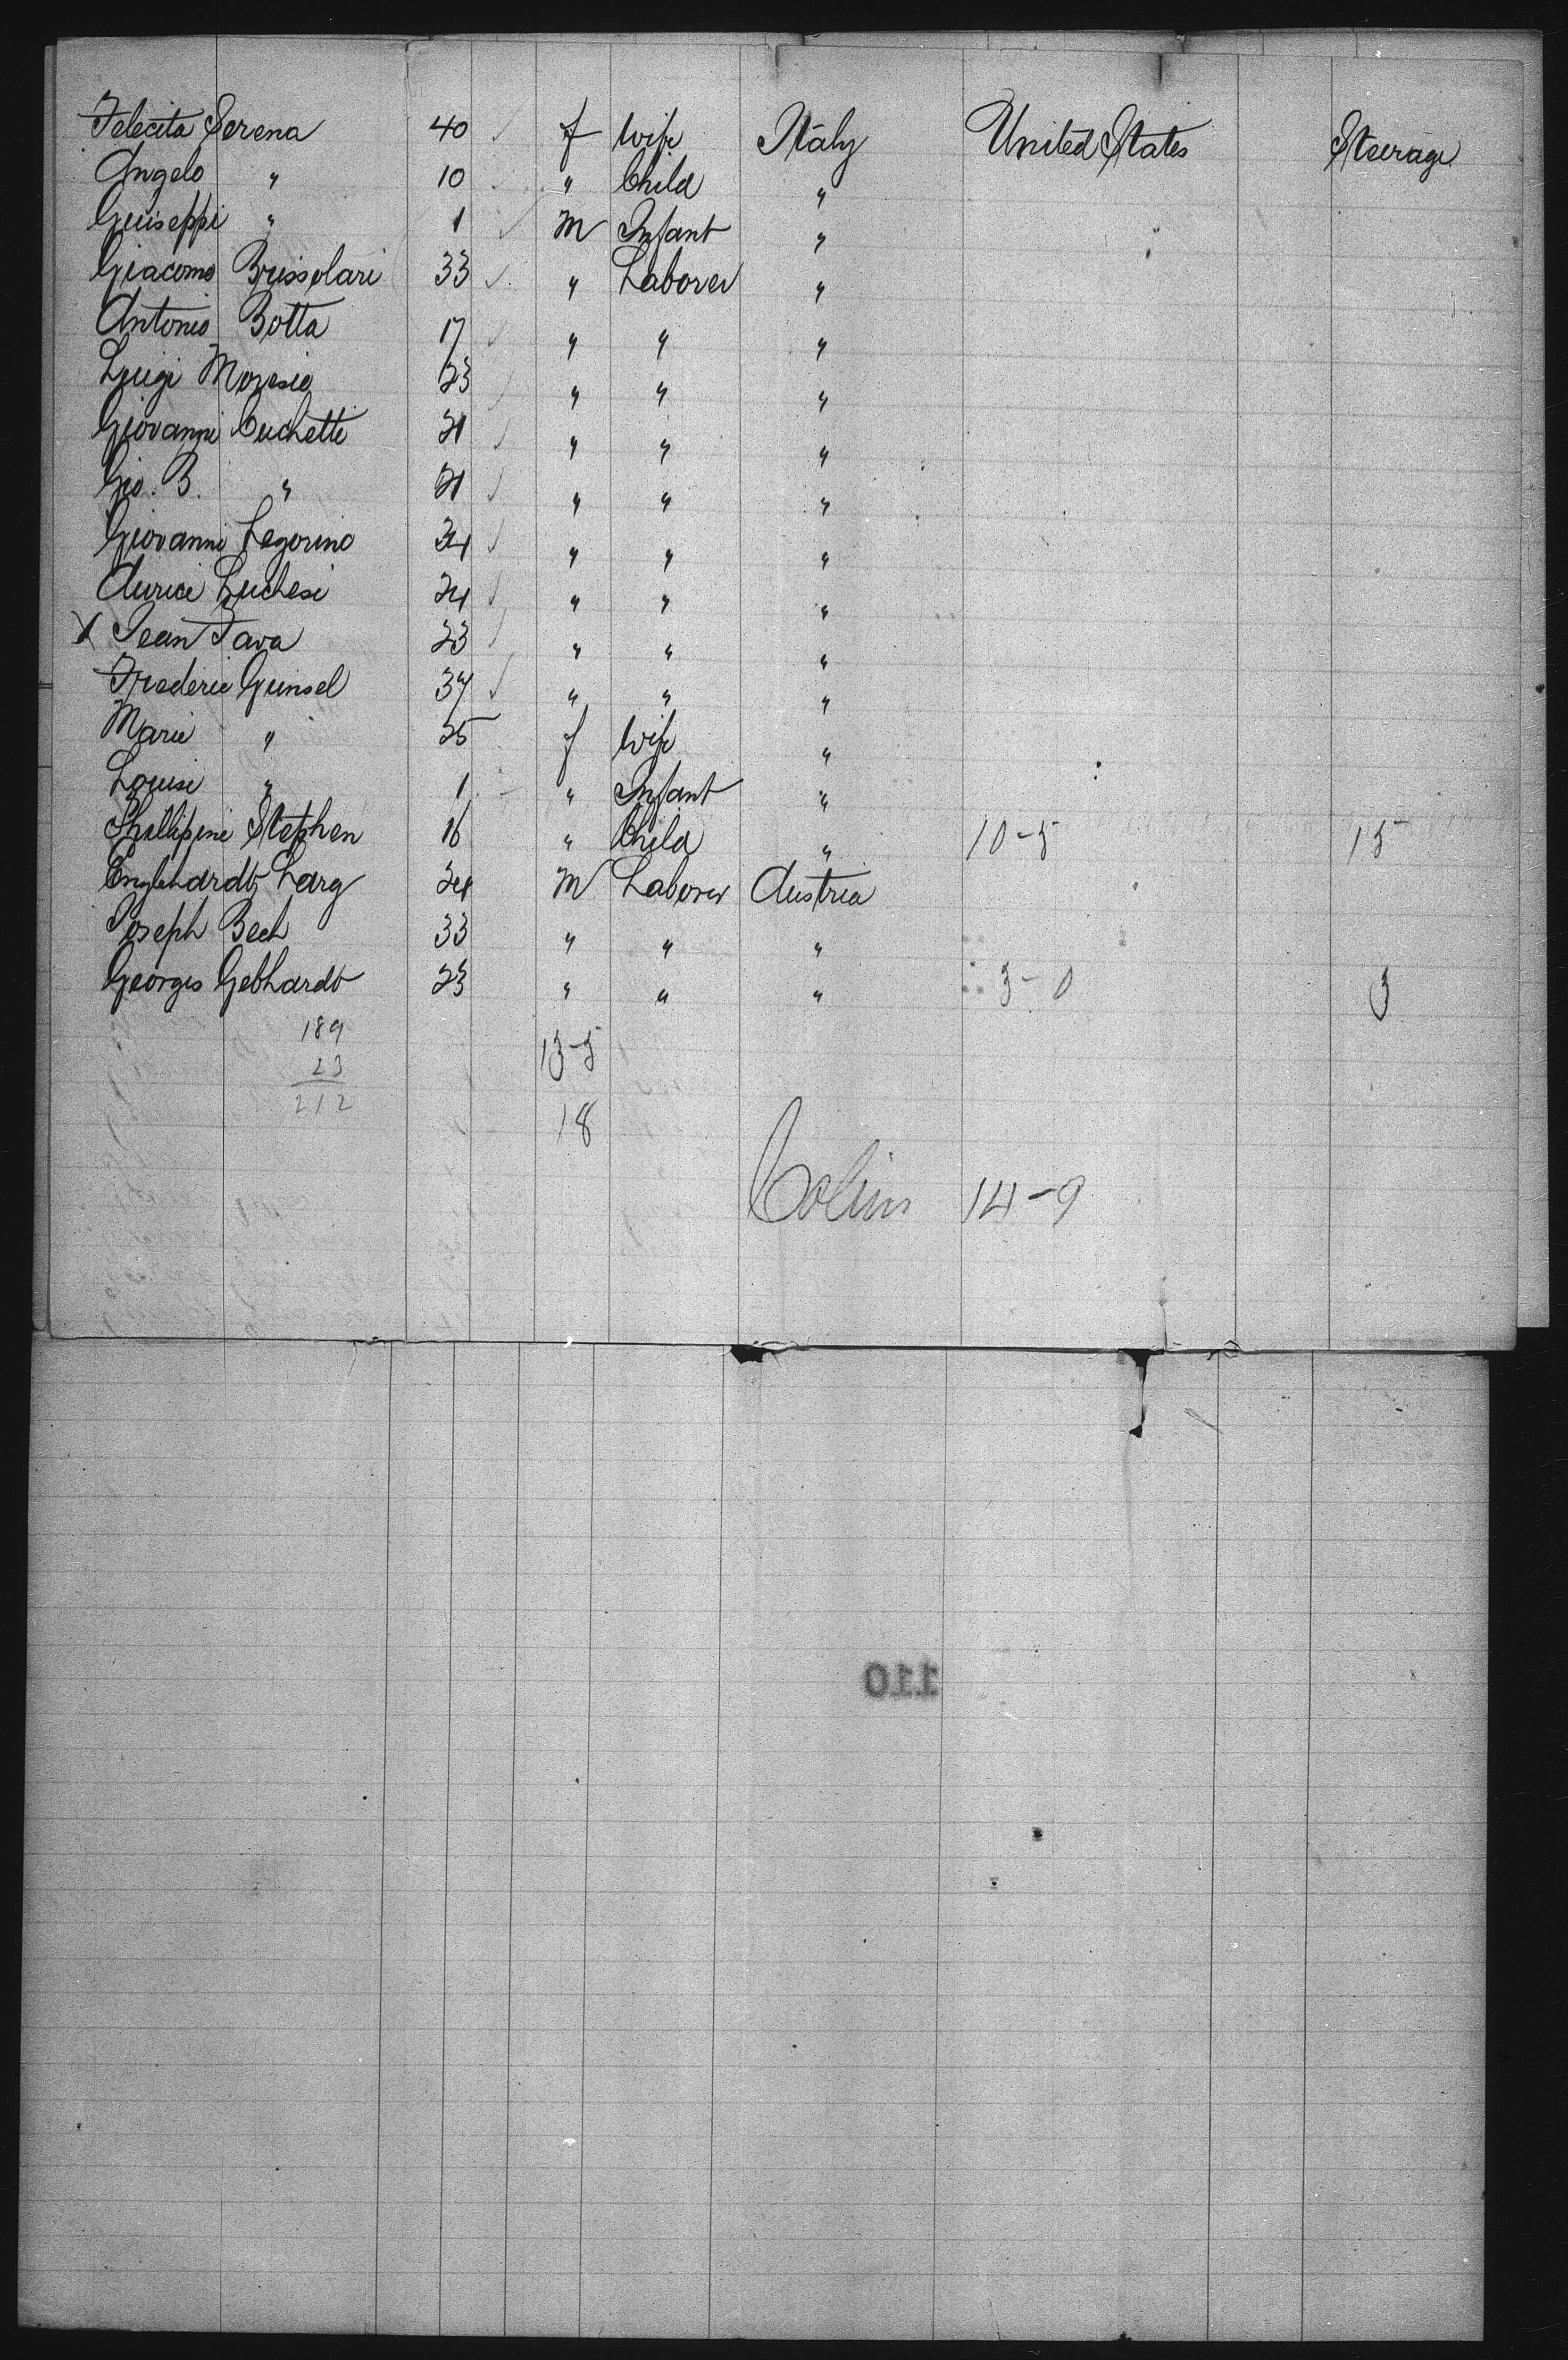 Felecita Serena 40 f Wife Italy United States Steerage
Angelo " 10 " Child "
Guiseppi " 1 M Infant "
Giacomo Brissolari 33 " Laborer "
Antonio Botta 17 " " "
Luigi 23 " " "
Giovanni Cuchetti 21 " " "
Gio. B. " 21 " " "
Giovanni Legorino 34 " " "
Luchesi 24 " " "
X Jean Fava 23 " " "
Frederic Gunsel 37 " " "
Marie " 25 f Wife "
Louise " 1 " Infant "
Phillipine Stephen 16 " Child " 10-5 15
Englehardt Larg 24 M Laborer Austria
Joseph Bech 33 " " "
Georges Gebhardt 23 " " " 3-0 3
189
23
212
13-5
18
Colius 14-9
110